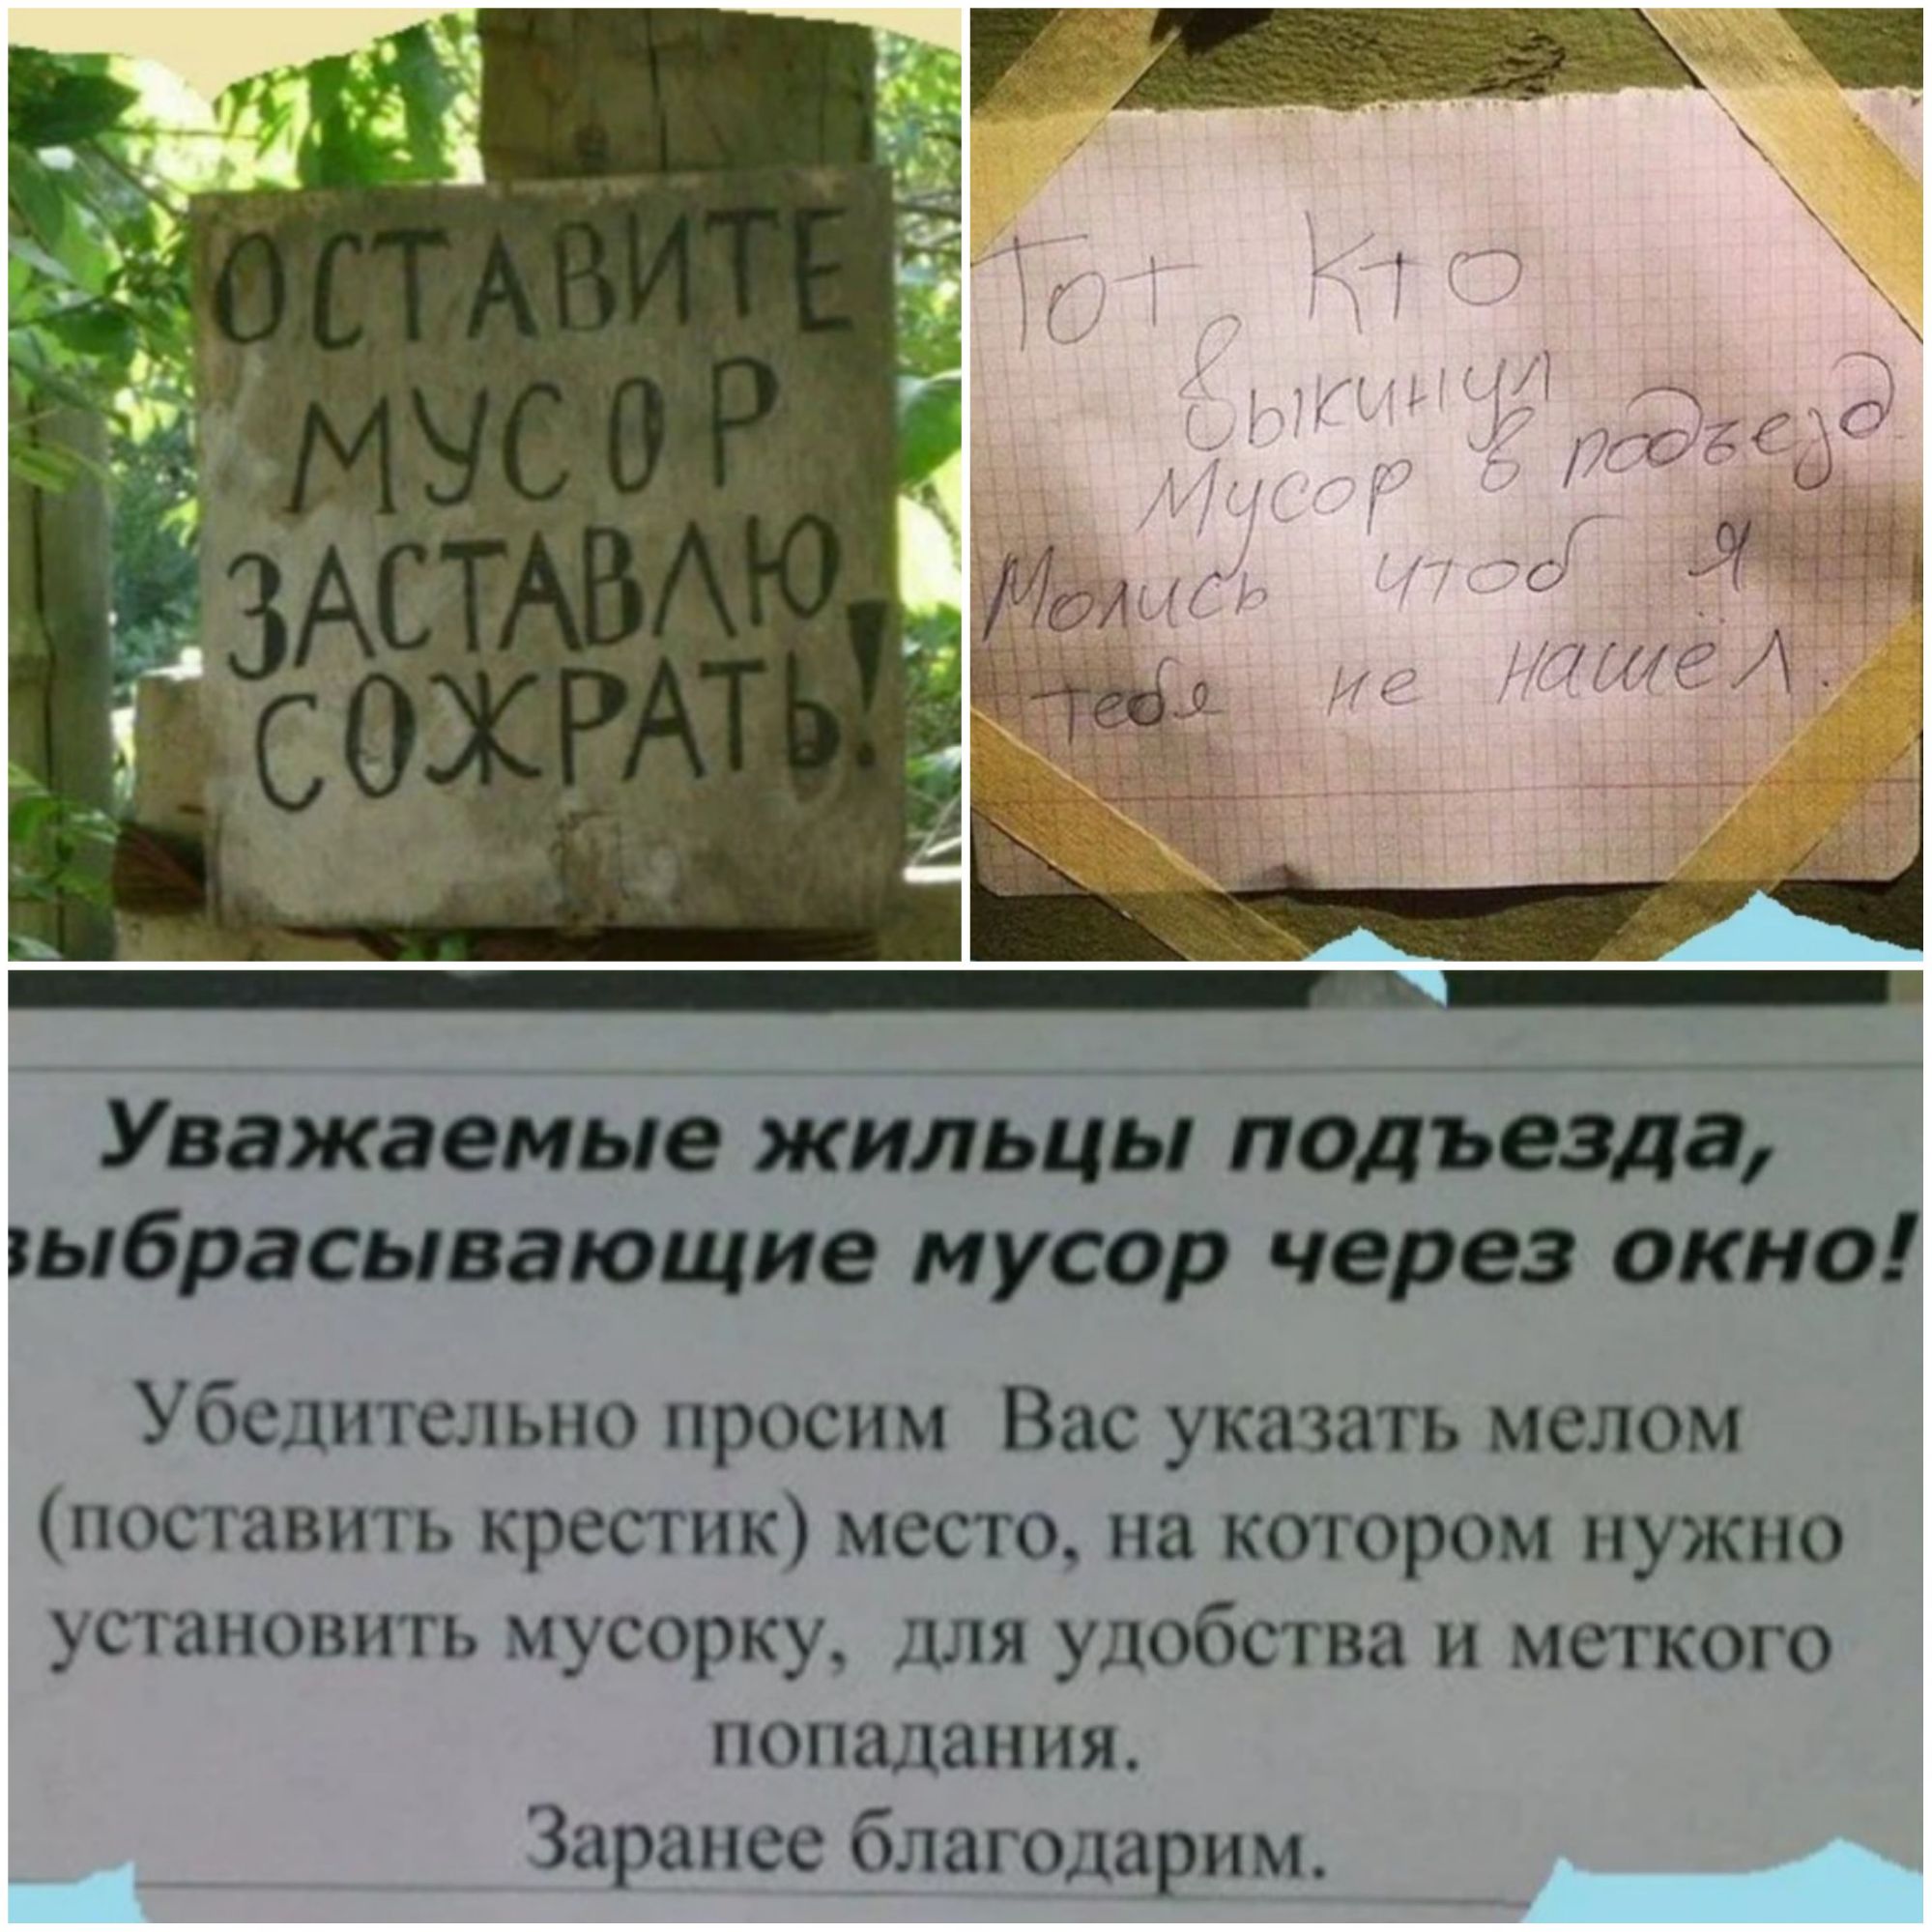 ОСТАВИТЕ
МУСОР
ЗАСТАВЛЮ
СОЖРАТЬ!
Тот кто
выкинул
Мусор в подъезд
Молись чтоб я
тебя не нашёл.
Уважаемые жильцы подъезда,
выбрасывающие мусор через окно!
Убедительно просим Вас указать мелом
(поставить крестик) место, на котором нужно
установить мусорку, для удобства и меткого
попадания.
Заранее благодарим.